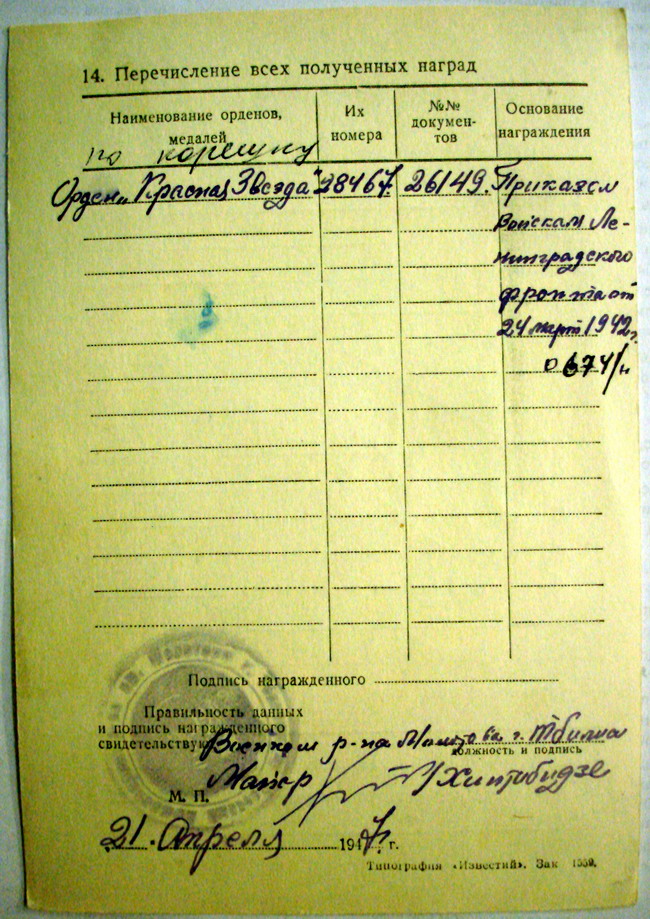 14. Перечисление всех полученных наград
Наименование орденов, медалей
Их номера
№№ документов
Основание награждения
по корешку
Орден „Красная Звезда"
28467.
26149.
Приказом
Войскам Ле-
нинградского
фронта от
24 март 1942 г.
0674/н
Подпись награжденного
Правильность данных
и подпись награжденного
свидетельствую
Военком р-на г. Тбилиси
должность и подпись
Майор
М. П.
21. Апреля 1947 г.
Типография «Известий». Зак 1559.